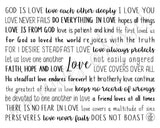 GOD IS LOVE love each other deeply I LOVE YOU
LOVE NEVER FAILS DO EVERYTHING IN LOVE hopes all things
LOVE IS FROM GOD love is patient and kind He first loved us
for God so loved the world rejoices with the truth
FOR I DESIRE STEADFAST LOVE love always protects
let us love one another not easily angered
FAITH HOPE AND LOVE Love LOVE COVERS OVER ALL
His steadfast love endures forever let brotherly love continue
the greatest of these is LOVE keeps no record of wrongs
be devoted to one another in love a friend loves at all times
THERE IS NO FEAR IN LOVE love covers a multitude of sins
PERSEVERES love never fails DOES NOT BOAST